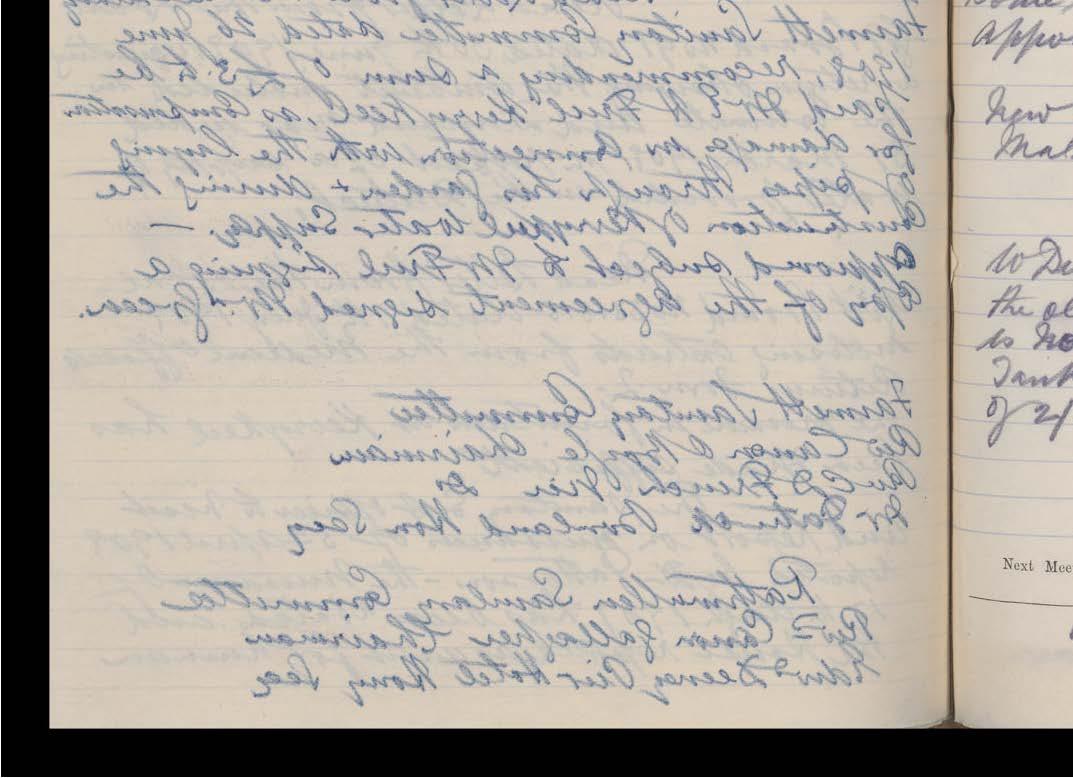 Fannett Sanitary Committee dated 26 June
1908, recommending a sum of £3 to be
paid Mr E H Friel Kerrykeel, as Compensation
for damage in Connection with the laying
of pipes through his Garden & during the
Construction of Kerrykeel water Supply —
Approved subject to Mr Friel signing a
Copy of the agreement signed Mr Green.
Fannett Sanitary Committee
Rev Canon O'Boyle Chairman
Rev C D French Vice Do
Dr Patrick Borland Hon Secy
Rathmullen Sanitary Committee
Revd Canon Gallagher Chairman
Edwd Deeney Pier Hotel Hony Sec
Appo
New
Mal
the ol
is no
Tank
of 21
Next Mee